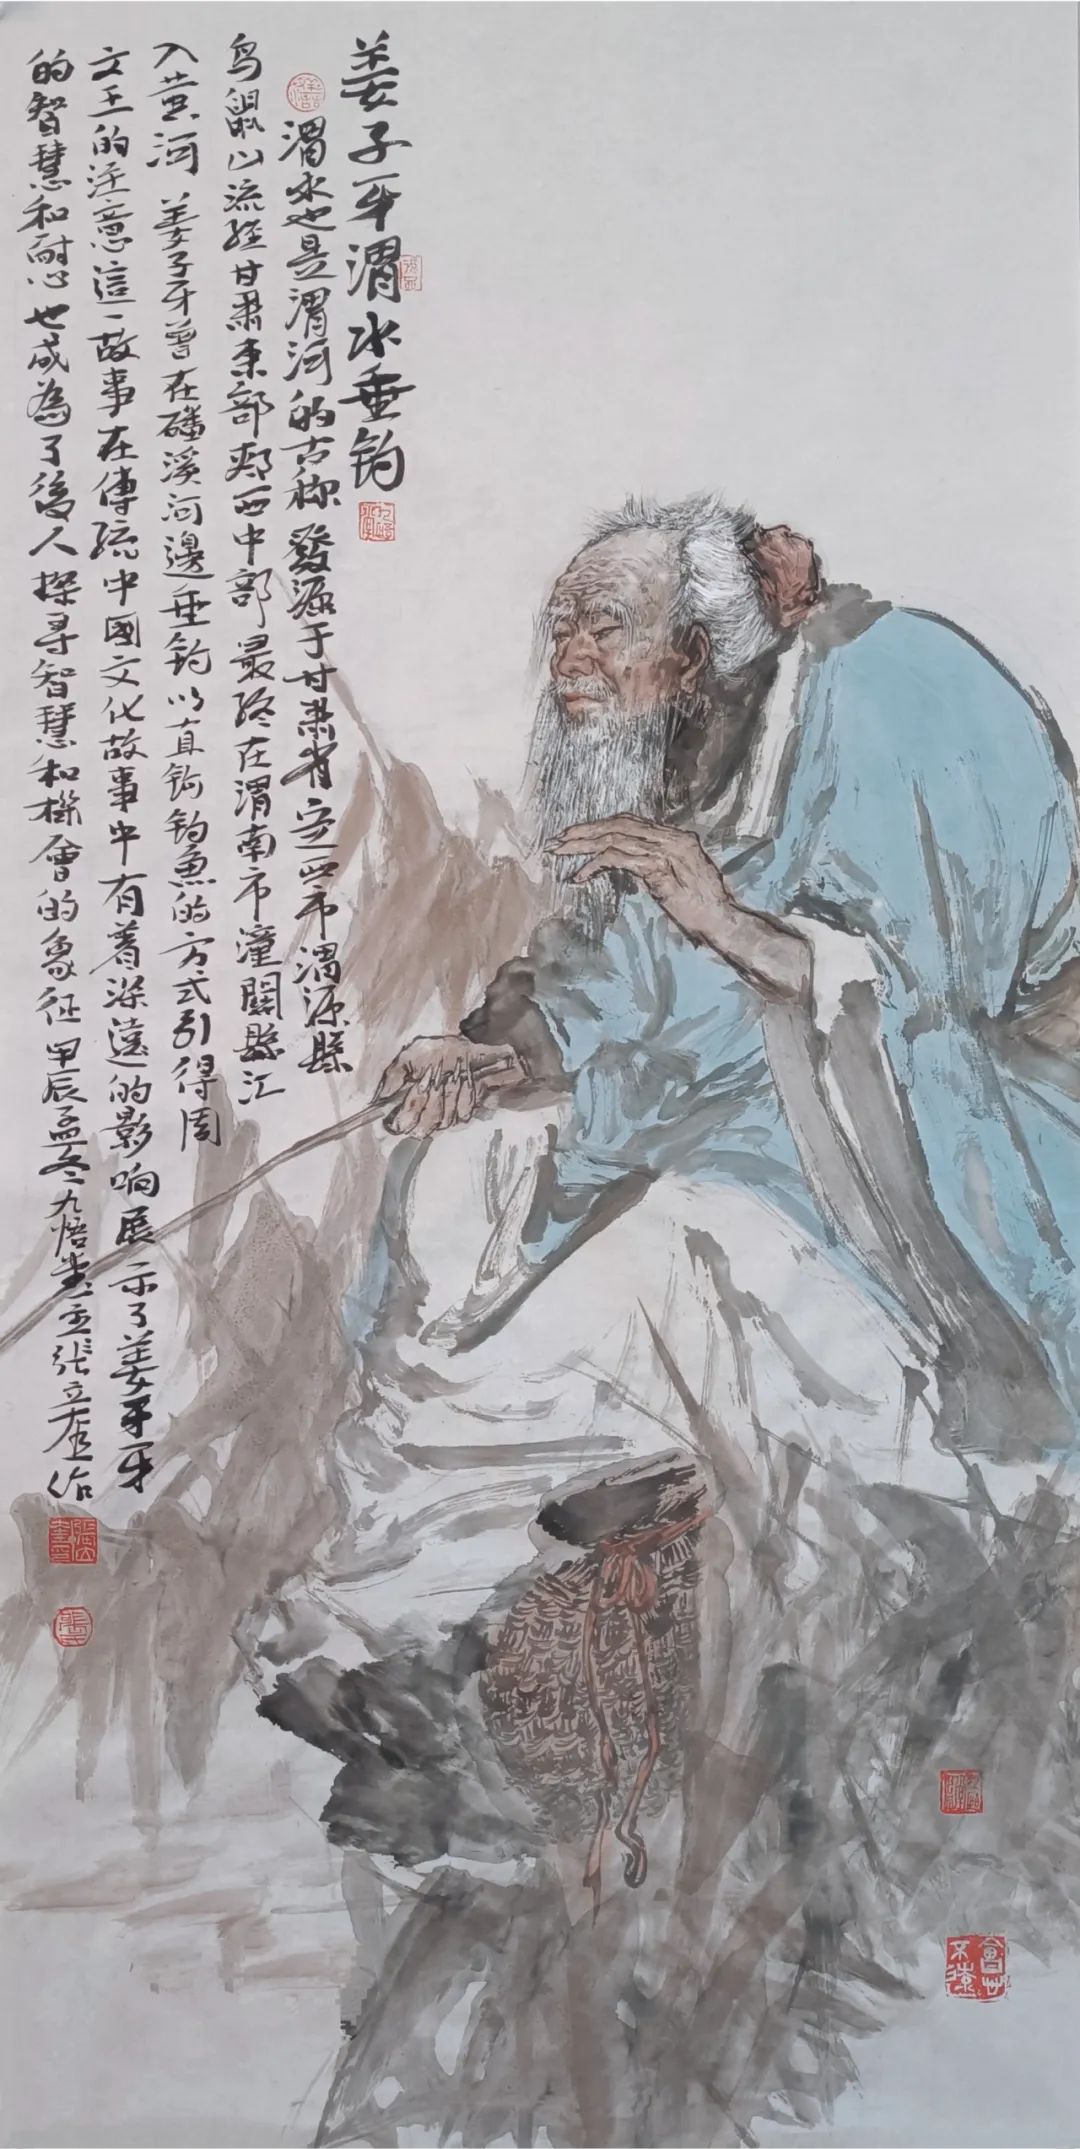 姜子牙渭水垂钓
渭水也是渭河的古称發源于甘肃省定西市渭源縣
鸟鼠山流经甘肃東部陕西中部最终在渭南市潼關縣汇
入黄河 姜子牙曾在磻溪河邊垂钓以直钩钓魚的方式引得周
文王的注意這一故事在傳統中國文化故事中有着深遠的影响展示了姜子牙
的智慧和耐心也成為了後人探寻智慧和機會的象征 甲辰孟冬九悟堂主张立奎作